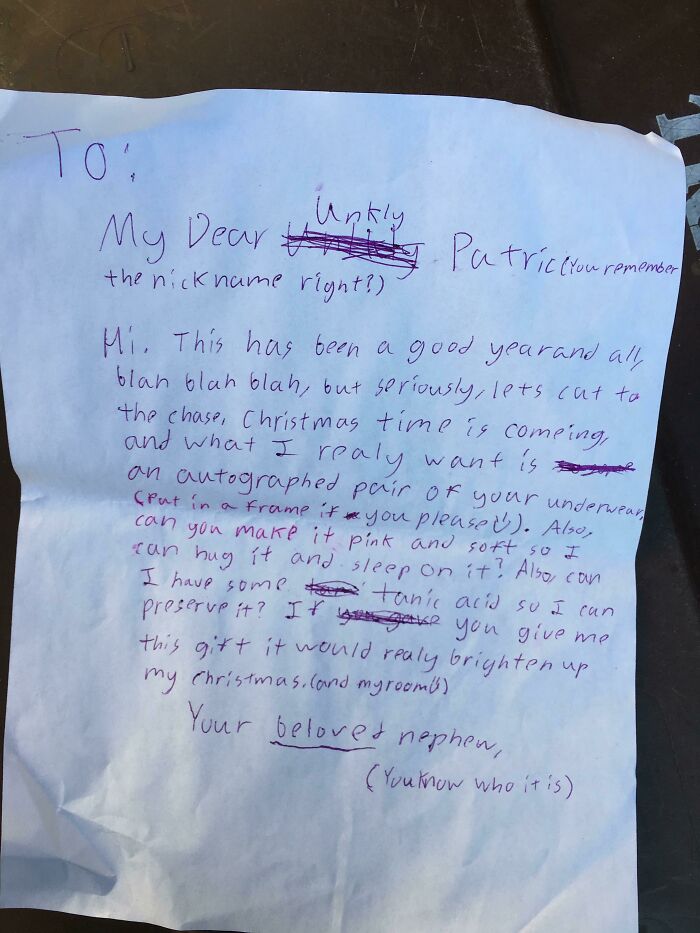 To:
Unkly
My Dear Patric (You remember
the nickname right?)
Hi. This has been a good year and all,
blah blah blah, but seriously, lets cut to
the chase, Christmas time is comeing,
and what I realy want is
an autographed pair of your underwear,
(Put in a frame if you please). Also,
can you make it pink and soft so I
can hug it and sleep on it? Also, can
I have some tanic acid so I can
preserve it? If you give me
this gift it would realy brighten up
my christmas. (and my room)
Your beloved nephew,
(You know who it is)